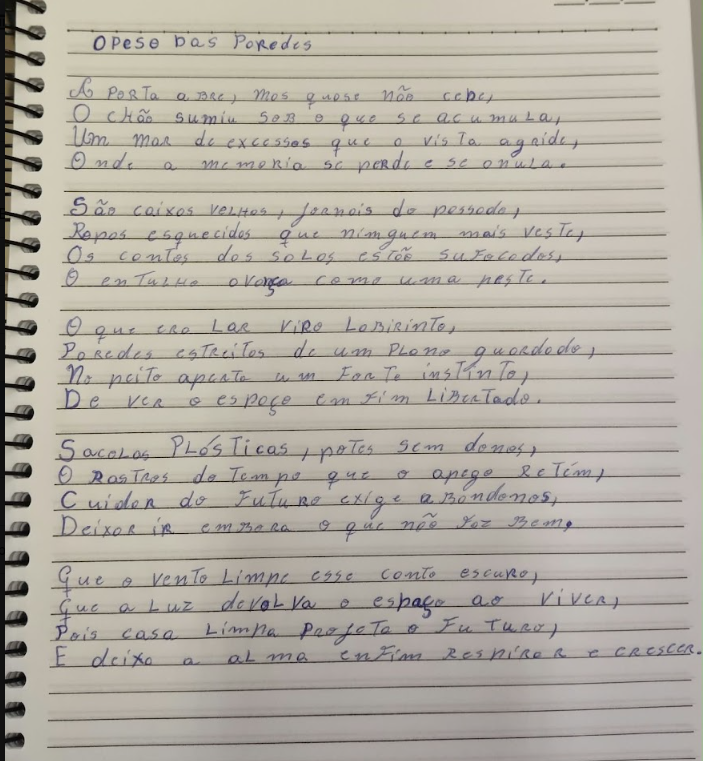 O Peso Das Paredes
A Porta abre, mas quase não cede,
O chão sumiu sob o que se acumula,
Um mar de excessos que a vista agride,
Onde a memoria se perde e se anula.
São caixas velhas, jornais do passado,
Ropas esquecidas que ninguem mais veste,
Os contos das salas estão sufocados,
O entulho avança como uma peste.
O que era lar vira labirinto,
Paredes estreitas de um plano guardado,
No peito aperta um forte instinto,
De ver o espaço em fim libertado.
Sacolas plásticas, potes sem donos,
O rastros do tempo que o apego retém,
Cuidar do futuro exige abandonos,
Deixar ir embora o que não faz bem,
Que o vento limpe esse canto escuro,
Que a luz devolva o espaço ao viver,
Pois casa limpa projeta o futuro,
E deixa a alma enfim respirar e crescer.